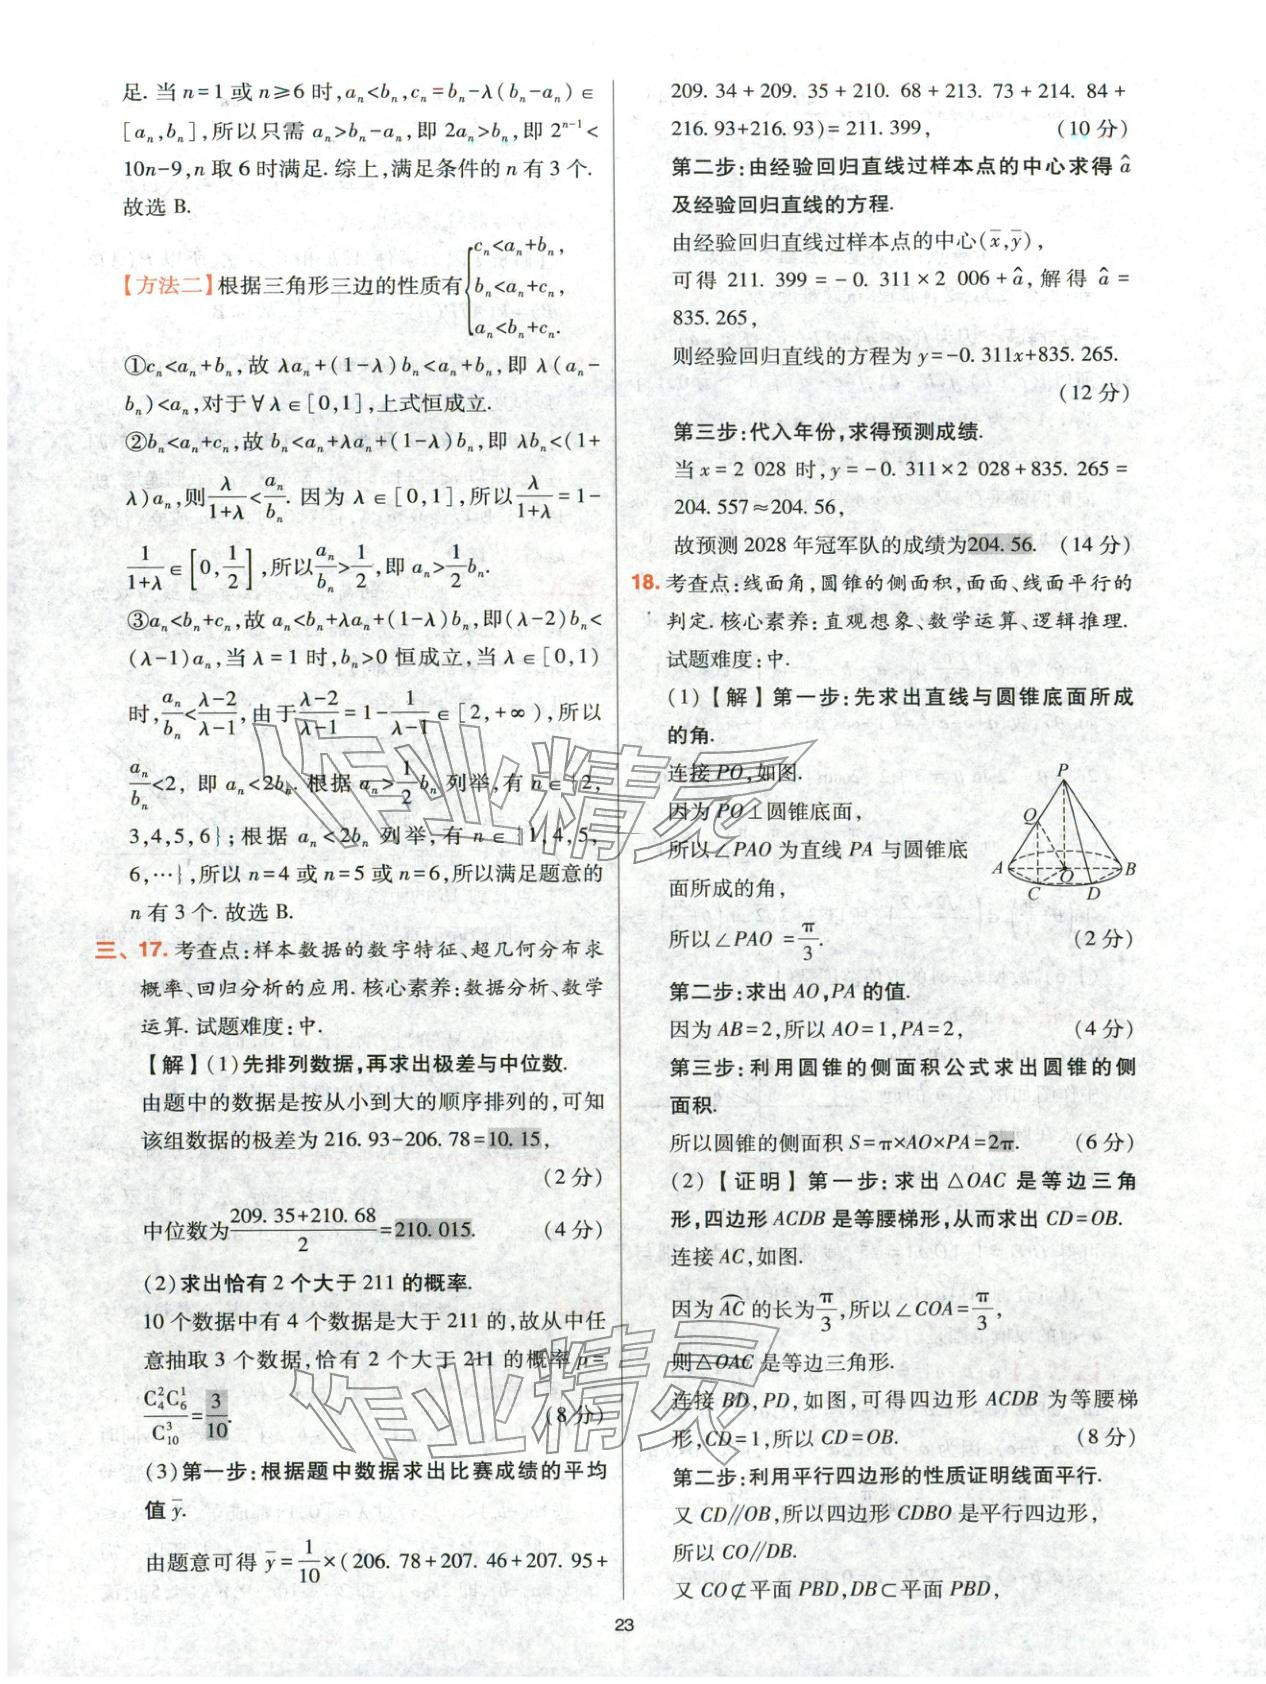 足. 当 n=1 或 n≥6 时, aₙ<bₙ, cₙ=bₙ-λ(bₙ-aₙ)∈
[aₙ,bₙ], 所以只需 aₙ>bₙ-aₙ, 即 2aₙ>bₙ, 即 2ⁿ⁻¹<
10n-9, n 取 6 时满足. 综上, 满足条件的 n 有 3 个.
故选 B.
【方法二】根据三角形三边的性质有{cₙ<aₙ+bₙ,
bₙ<aₙ+cₙ,
aₙ<bₙ+cₙ.
①cₙ<aₙ+bₙ, 故 λaₙ+(1-λ)bₙ<aₙ+bₙ, 即 λ(aₙ-
bₙ)<aₙ, 对于∀λ∈[0,1], 上式恒成立.
②bₙ<aₙ+cₙ, 故 bₙ<aₙ+λaₙ+(1-λ)bₙ, 即 λbₙ<(1+
λ)aₙ, 则 λ/(1+λ)<aₙ/bₙ. 因为 λ∈[0,1], 所以 λ/(1+λ)=1-
1/(1+λ)∈[0,1/2], 所以 aₙ/bₙ>1/2, 即 aₙ>1/2 bₙ.
③aₙ<bₙ+cₙ, 故 aₙ<bₙ+λaₙ+(1-λ)bₙ, 即(λ-2)bₙ<
(λ-1)aₙ, 当 λ=1 时, bₙ>0 恒成立, 当 λ∈[0,1)
时, aₙ/bₙ<(λ-2)/(λ-1), 由于 (λ-2)/(λ-1)=1-1/(λ-1)∈[2,+∞), 所以
aₙ/bₙ<2, 即 aₙ<2bₙ. 根据 aₙ>1/2 bₙ 列举, 有 n∈{2,
3,4,5,6}; 根据 aₙ<2bₙ 列举, 有 n∈{1,4,5,
6,…}, 所以 n=4 或 n=5 或 n=6, 所以满足题意的
n 有 3 个. 故选 B.
三、17. 考查点:样本数据的数字特征、超几何分布求
概率、回归分析的应用. 核心素养:数据分析、数学
运算. 试题难度:中.
【解】(1)先排列数据,再求出极差与中位数.
由题中的数据是按从小到大的顺序排列的,可知
该组数据的极差为 216.93-206.78=10.15,
(2 分)
中位数为(209.35+210.68)/2=210.015. (4 分)
(2)求出恰有 2 个大于 211 的概率.
10 个数据中有 4 个数据是大于 211 的,故从中任
意抽取 3 个数据,恰有 2 个大于 211 的概率 p=
C₄²C₆¹/C₁₀³=3/10. (8 分)
(3)第一步:根据题中数据求出比赛成绩的平均
值 y̅.
由题意可得 y̅=1/10×(206.78+207.46+207.95+
209.34+209.35+210.68+213.73+214.84+
216.93+216.93)=211.399, (10 分)
第二步:由经验回归直线过样本点的中心求得 â
及经验回归直线的方程.
由经验回归直线过样本点的中心(x̅,y̅),
可得 211.399=-0.311×2 006+â, 解得 â=
835.265,
则经验回归直线的方程为 y=-0.311x+835.265.
(12 分)
第三步:代入年份,求得预测成绩.
当 x=2 028 时, y=-0.311×2 028+835.265=
204.557≈204.56,
故预测 2028 年冠军队的成绩为204.56. (14 分)
18. 考查点:线面角,圆锥的侧面积,面面、线面平行的
判定. 核心素养:直观想象、数学运算、逻辑推理.
试题难度:中.
(1)【解】第一步:先求出直线与圆锥底面所成
的角.
连接 PO, 如图.
因为 PO⊥圆锥底面,
所以∠PAO 为直线 PA 与圆锥底
面所成的角,
所以∠PAO=π/3. (2 分)
P
Q
A
O
B
C
D
第二步:求出 AO,PA 的值.
因为 AB=2, 所以 AO=1, PA=2, (4 分)
第三步:利用圆锥的侧面积公式求出圆锥的侧
面积.
所以圆锥的侧面积 S=π×AO×PA=2π. (6 分)
(2)【证明】第一步:求出△OAC 是等边三角
形,四边形 ACDB 是等腰梯形,从而求出 CD=OB.
连接 AC, 如图.
因为 A͡C 的长为π/3, 所以∠COA=π/3,
则△OAC 是等边三角形.
连接 BD,PD, 如图, 可得四边形 ACDB 为等腰梯
形, CD=1, 所以 CD=OB. (8 分)
第二步:利用平行四边形的性质证明线面平行.
又 CD//OB, 所以四边形 CDBO 是平行四边形,
所以 CO//DB.
又 CO⊄平面 PBD, DB⊂平面 PBD,
23
作业精灵
作业精灵